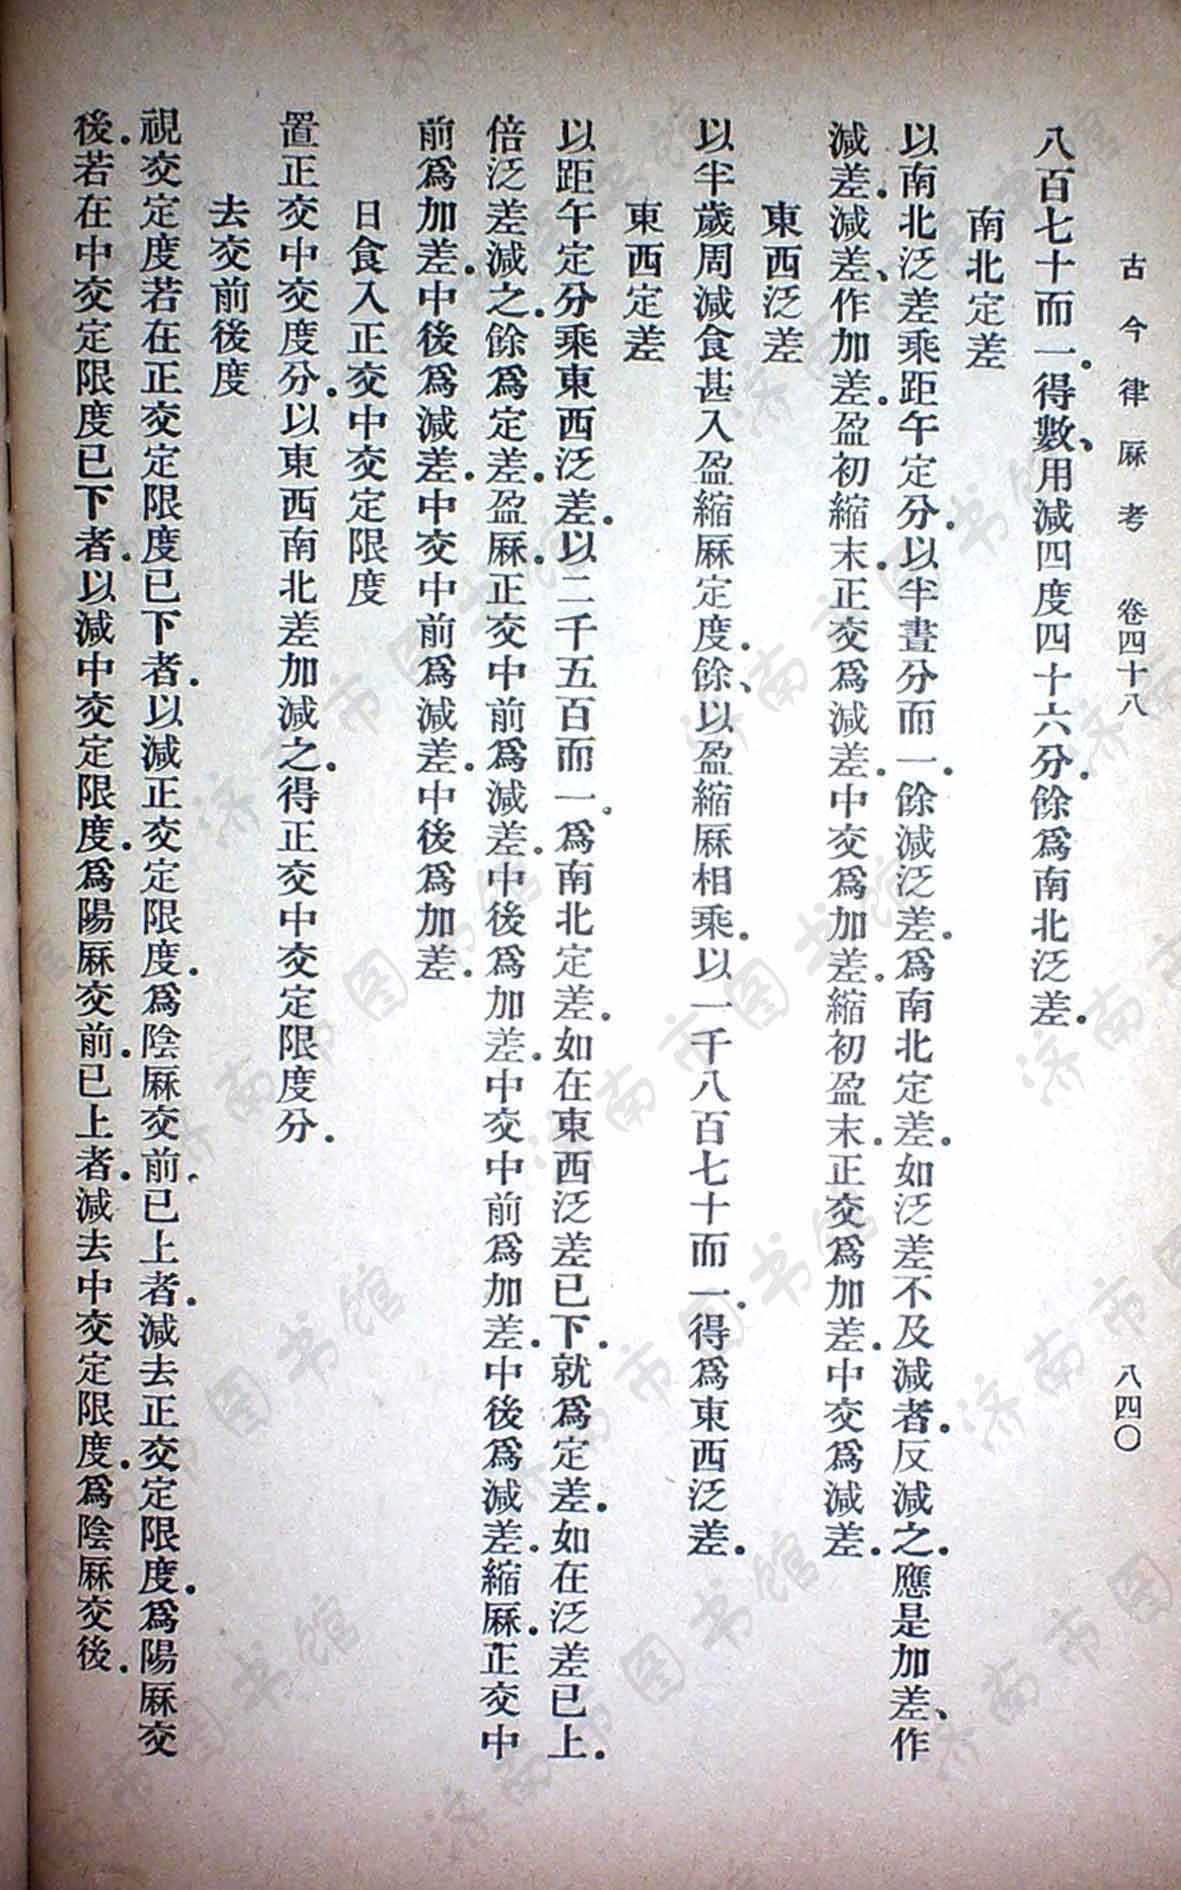 古今律厤考　卷四十八　八四〇
八百七十而一。得數、用減四度四十六分。餘爲南北泛差。
南北定差
以南北泛差乘距午定分。以半晝分而一。餘減泛差。爲南北定差。如泛差不及減者。反減之。應是加差、作
減差。減差、作加差。盈初縮末。正交爲減差。中交爲加差。縮初盈末。正交爲加差。中交爲減差。
東西泛差
以半歲周減食甚入盈縮厤定度。餘、以盈縮厤相乘。以一千八百七十而一。得爲東西泛差。
東西定差
以距午定分乘東西泛差。以二千五百而一。爲南北定差。如在東西泛差已下。就爲定差。如在泛差已上。
倍泛差減之。餘爲定差。盈厤。正交中前爲減差。中後爲加差。中交中前爲加差。中後爲減差。縮厤。正交中
前爲加差。中後爲減差。中交中前爲減差。中後爲加差。
日食入正交中交定限度
置正交中交度分。以東西南北差加減之。得正交中交定限度分。
去交前後度
視交定度若在正交定限度已下者。以減正交定限度。爲陰厤交前。已上者。減去正交定限度。爲陽厤交
後。若在中交定限度已下者。以減中交定限度。爲陽厤交前。已上者。減去中交定限度。爲陰厤交後。
济南市图书馆